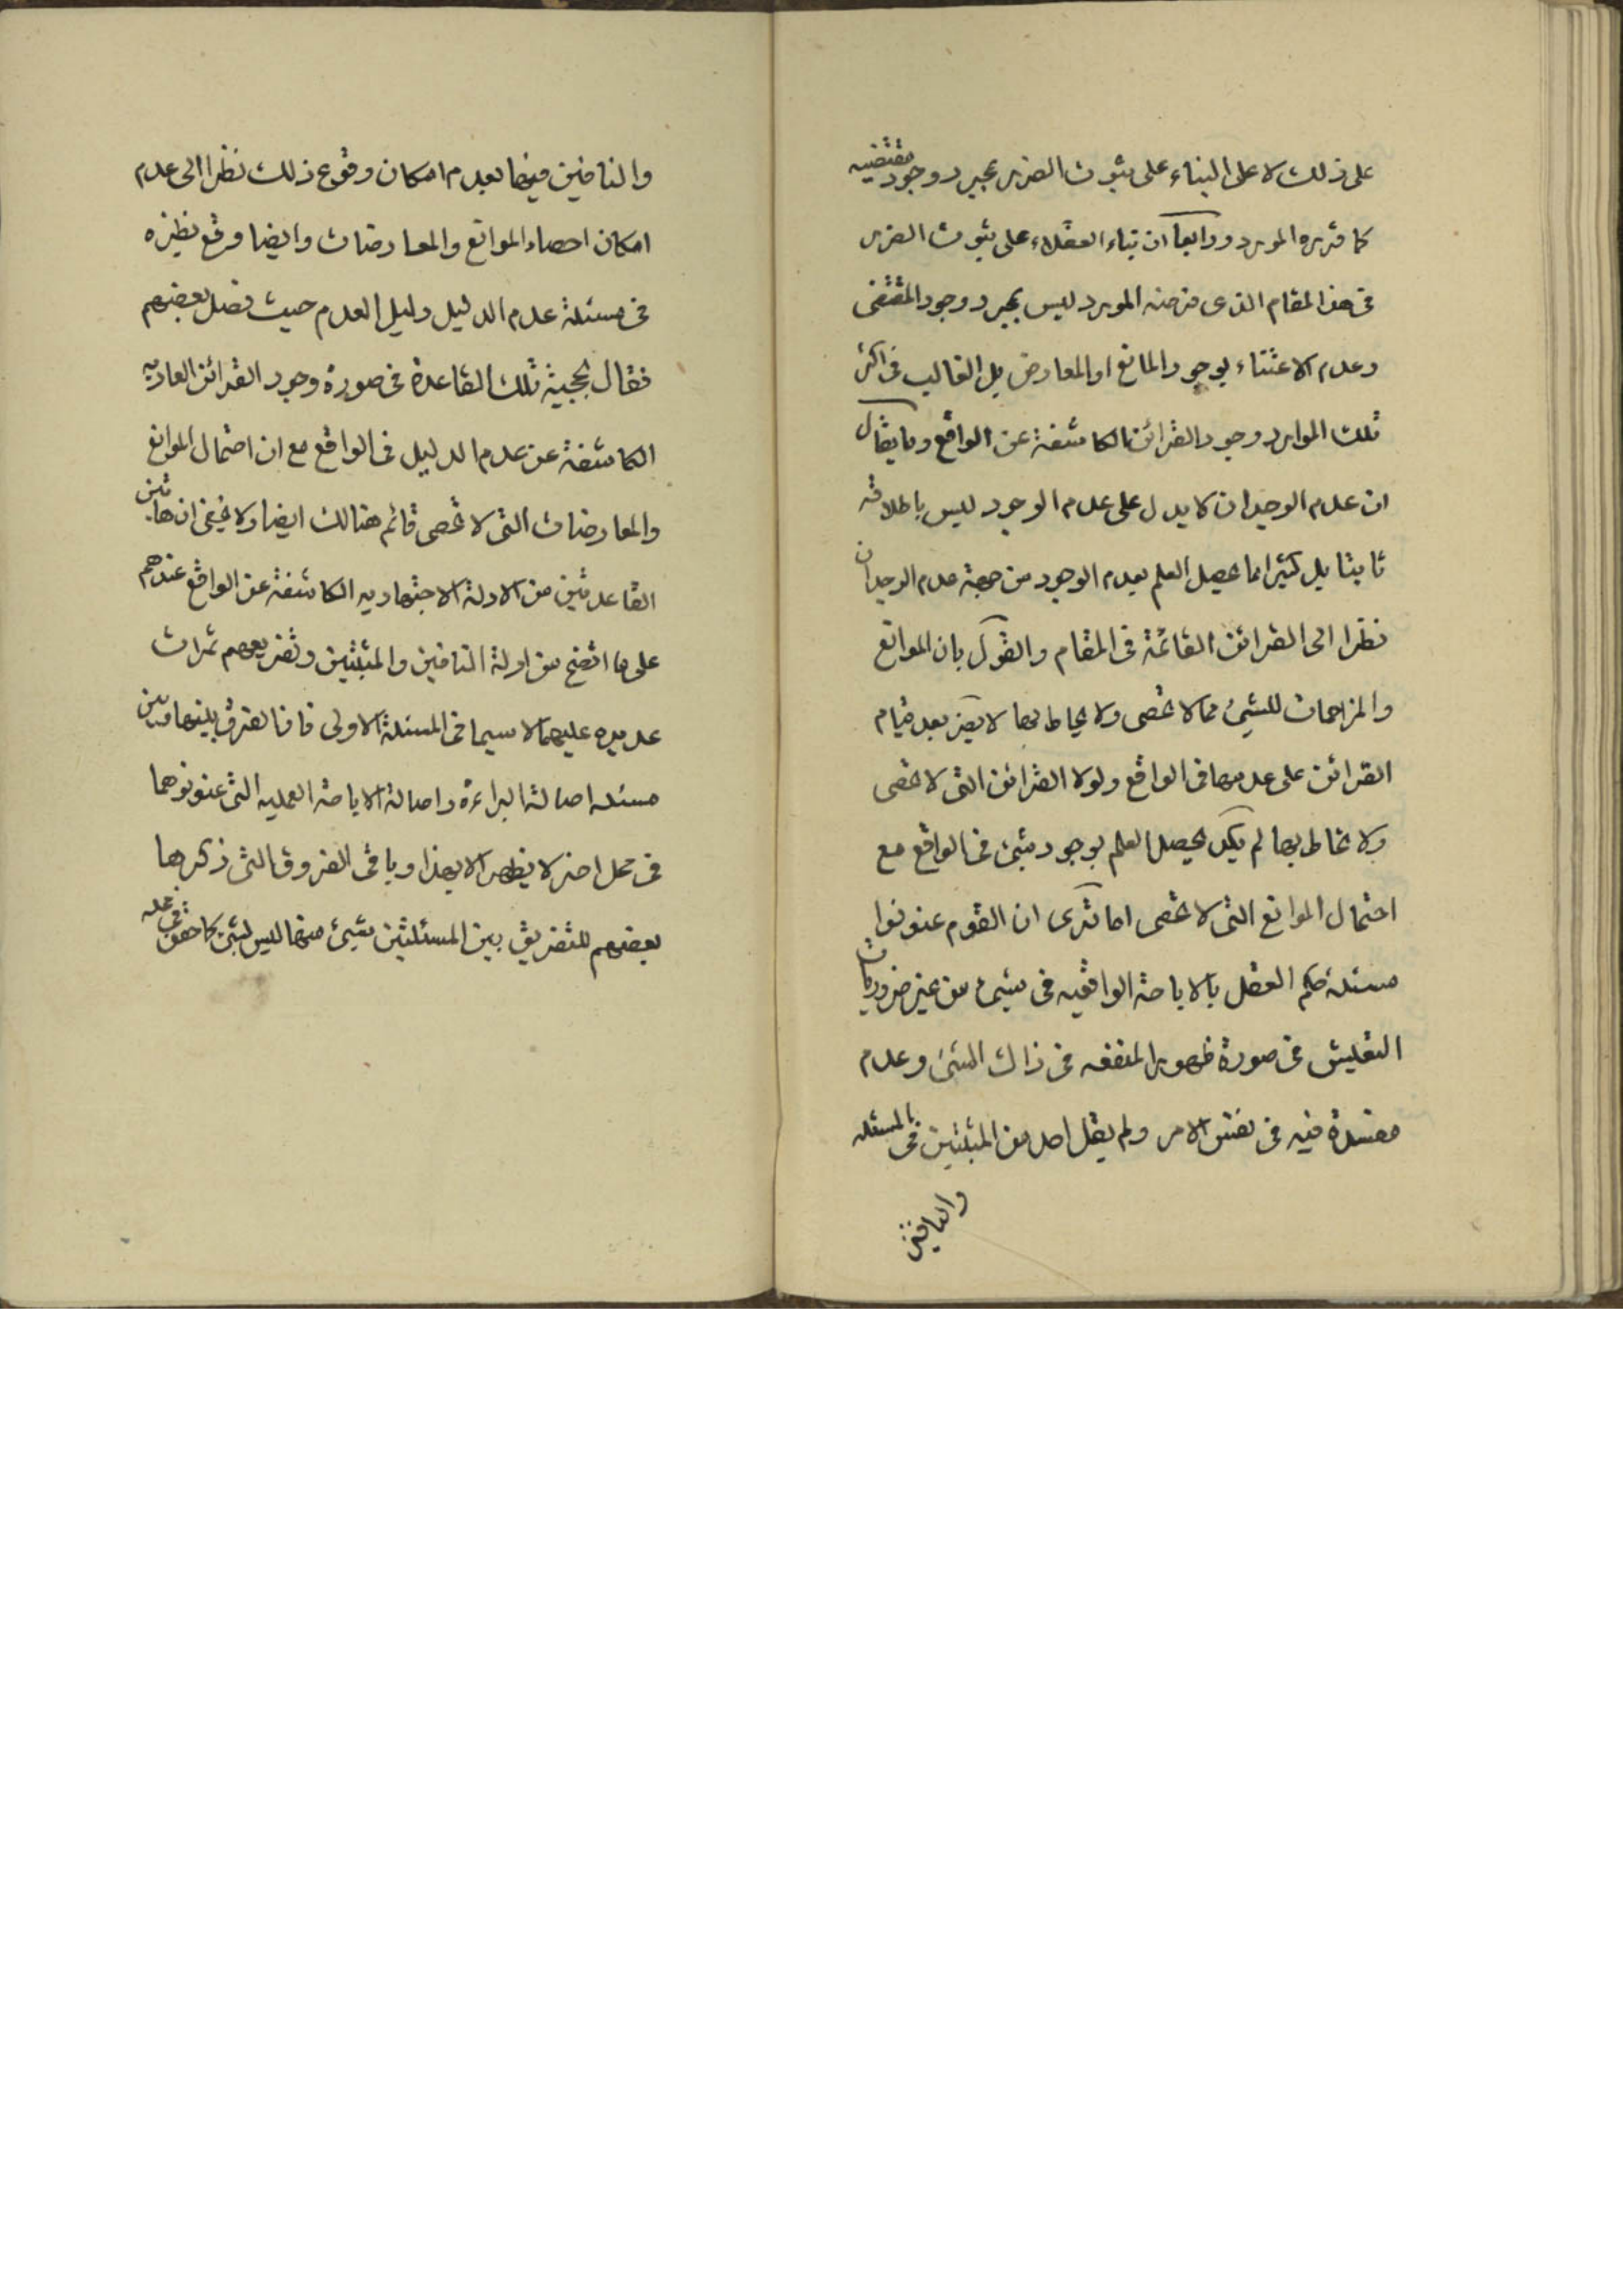 على ذلك لا على البناء على ثبوت الضرر بمجرد وجود مقتضيه
كما قرره المورد ورابعا ان بناء العقلاء على ثبوت الضرر
فى هذا المقام الذى فرضه المورد ليس بمجرد وجود المقتضى
وعدم الاعتناء بوجود المانع او المعارض بل الغالب فى اكثر
تلك الموارد وجود القرائن الكاشفة عن الواقع وما يقال
ان عدم الوجدان لا يدل على عدم الوجود ليس باطلاقه
ثابتا بل كثيرا ما يحصل العلم بعدم الوجود من جهة عدم الوجدان
نظرا الى القرائن القائمة فى المقام والقول بان الموانع
والمزاحمات للشئ مما لا تحصى ولا يحاط بها لا يضر بعد قيام
القرائن على عدمها فى الواقع ولولا القرائن التى لا تحصى
ولا تحاط بها لم يكد يحصل العلم بوجود شئ فى الواقع مع
احتمال الموانع التى لا تحصى اما ترى ان القوم عنونوا
مسئلة حكم العقل بالاباحة الواقعيه فى شئ من غير ضروريات
التعيش فى صورة ظهور المنفعه فى ذاك الشئ وعدم
مفسدة فيه فى نفس الامر ولم يقل احد من المثبتين فى المسئله
والنافين
والنافين فيها بعدم امكان وقوع ذلك نظرا الى عدم
امكان احصاء الموانع والمعارضات وايضا وقع نظيره
فى مسئلة عدم الدليل دليل العدم حيث فصل بعضهم
فقال بحجية تلك القاعدة فى صورة وجود القرائن العاديه
الكاشفة عن عدم الدليل فى الواقع مع ان احتمال الموانع
والمعارضات التى لا تحصى قائم هنالك ايضا ولا يخفى ان هاتين
القاعدتين من الادلة الاجتهاديه الكاشفة عن الواقع عندهم
على ما اتضح من ادلة النافين والمثبتين وتفريعهم ثمرات
عديده عليهما لا سيما فى المسئلة الاولى فان الفرق بينها وبين
مسئله اصالة البراءة واصالة الاباحة العمليه التى عنونوهما
فى محل اخر لا يظهر الا بهذا وباقى الفروق التى ذكرها
بعضهم للتفريق بين المسئلتين شيئ منها ليس بشئ كما حقق فى محله